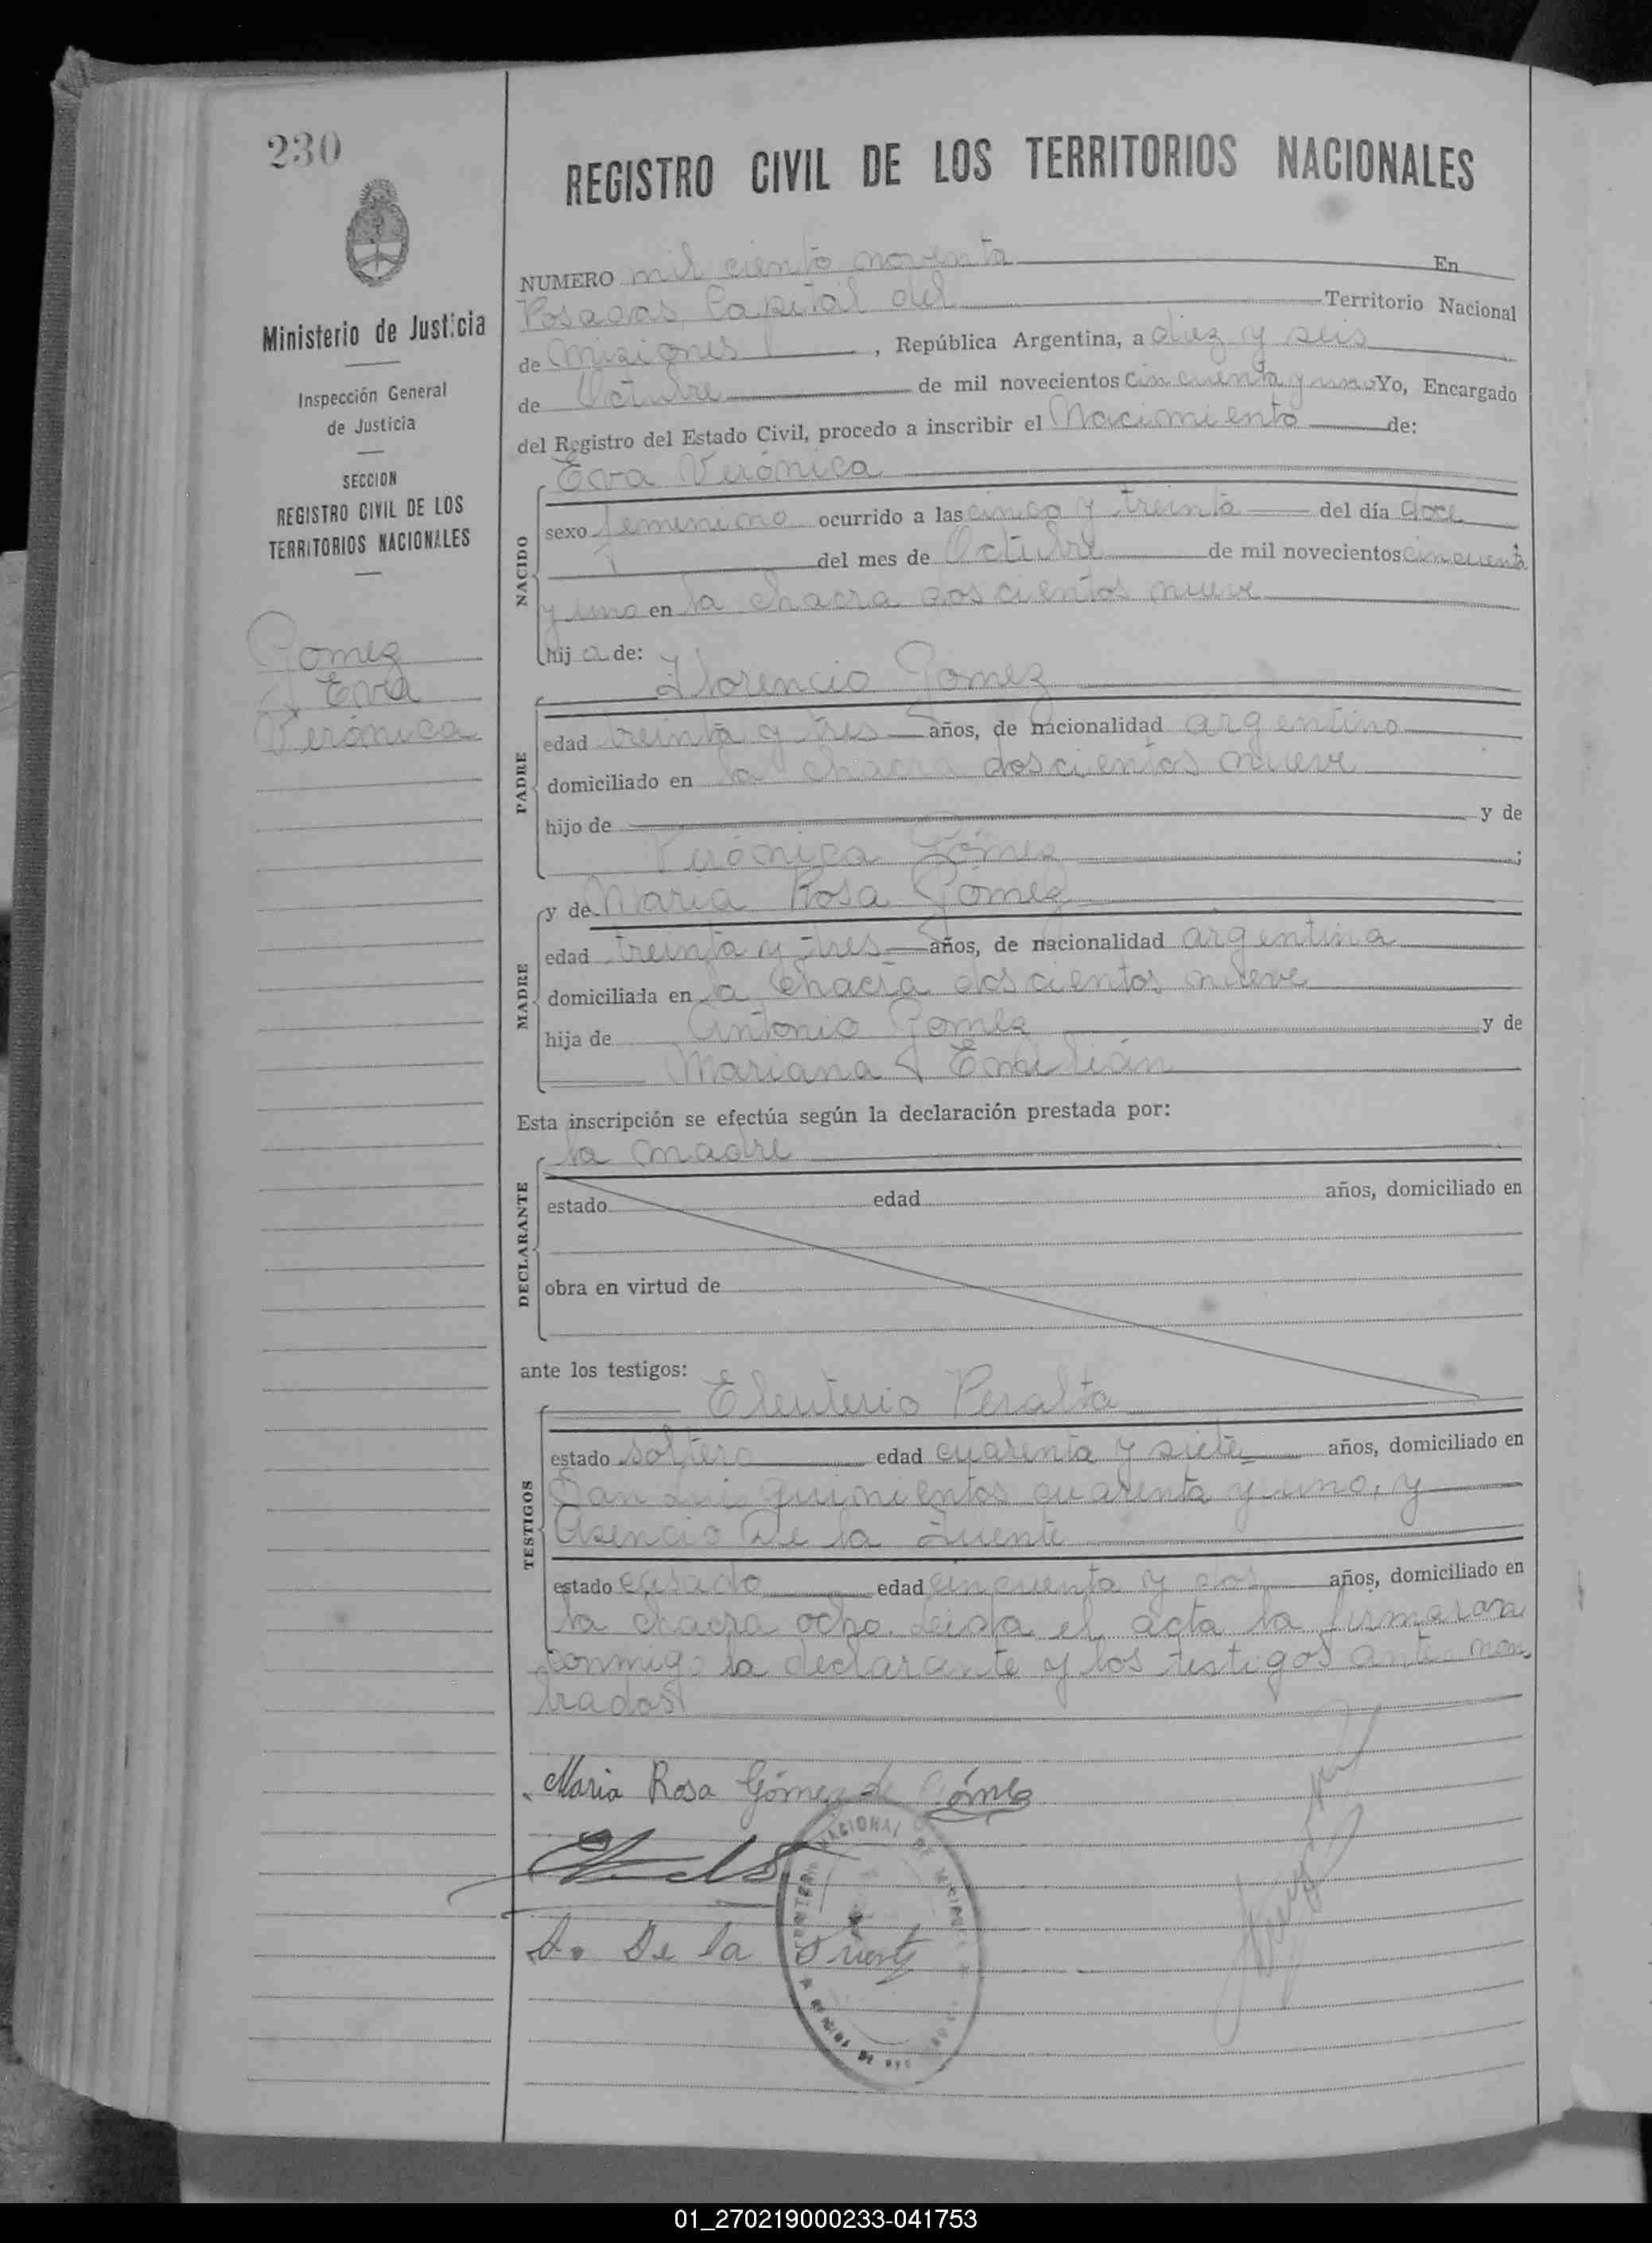 230
REGISTRO CIVIL DE LOS TERRITORIOS NACIONALES
Ministerio de Justicia
Inspección General
de Justicia
SECCION
REGISTRO CIVIL DE LOS
TERRITORIOS NACIONALES
Gomez
Eva
Verónica
NUMERO mil ciento noventa En
Posadas Capital del Territorio Nacional
de Misiones, República Argentina, a diez y seis
de Octubre de mil novecientos cincuenta y uno Yo, Encargado
del Registro del Estado Civil, procedo a inscribir el Nacimiento de:
NACIDO
Eva Verónica
sexo femenino ocurrido a las cinco y treinta del día doce
del mes de Octubre de mil novecientos cincuenta
y uno en la chacra doscientos nueve
hija de:
PADRE
Florencio Gomez
edad treinta y tres años, de nacionalidad argentino
domiciliado en la chacra doscientos nueve
hijo de y de
Verónica Gómez;
MADRE
y de Maria Rosa Gómez
edad treinta y tres años, de nacionalidad argentina
domiciliada en la chacra doscientos nueve
hija de Antonio Gomez y de
Mariana
Esta inscripción se efectúa según la declaración prestada por:
DECLARANTE
la madre
estado edad años, domiciliado en
obra en virtud de
ante los testigos:
TESTIGOS
Eleuterio Peralta
estado soltero edad cuarenta y siete años, domiciliado en
San Luis quinientos cuarenta y uno, y
Asencio De la Fuente
estado casado edad cincuenta y dos años, domiciliado en
la chacra ocho. Leida el acta la firmaron
conmigo la declarante y los testigos antes nom
brados
Maria Rosa Gómez de Gómez
A. De la Fuente
NACIONAL DE
01_270219000233-041753